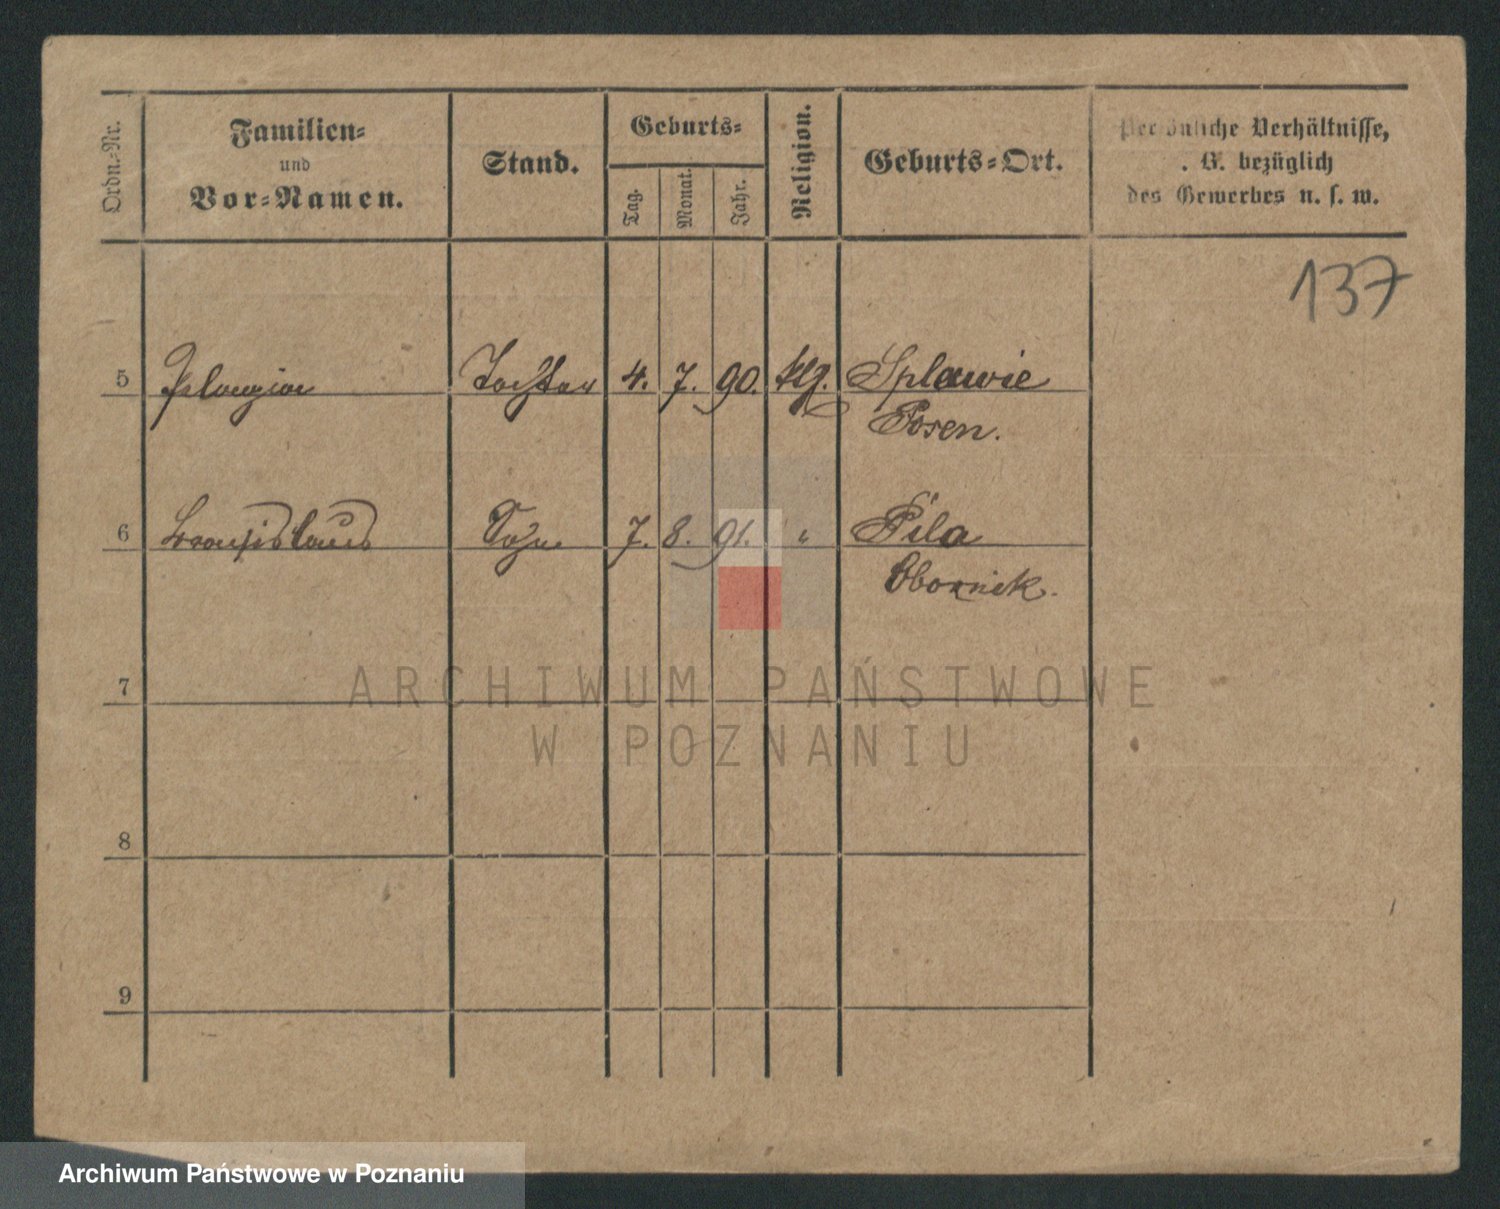 Ordn.-Nr.
Familien-
und
Vor-Namen.
Stand.
Geburts-
Tag.
Monat.
Jahr.
Religion.
Geburts-Ort.
Persönliche Verhältnisse,
z. B. bezüglich
des Gewerbes u. s. w.
137
5 Pelagia Tochter 4. 7. 90. ktl. Splawie
Posen.
6 Sohn 7. 8. 91. " Pila
Obornik.
7
ARCHIWUM PAŃSTWOWE
W POZNANIU
8
9
Archiwum Państwowe w Poznaniu